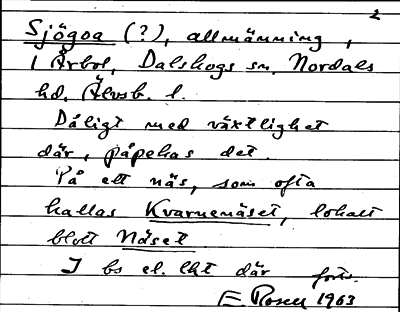 2
Sjögoa (?), allmänning,
i Årbol, Dalskogs sn, Nordals
hd, Älvsb. l.
Dåligt med växtlighet
där, påpekas det.
På ett näs, som ofta
kallas Kvarnenäset, lokalt
blott Näset
I bs el. lkt där forts.
E Rosell 1963